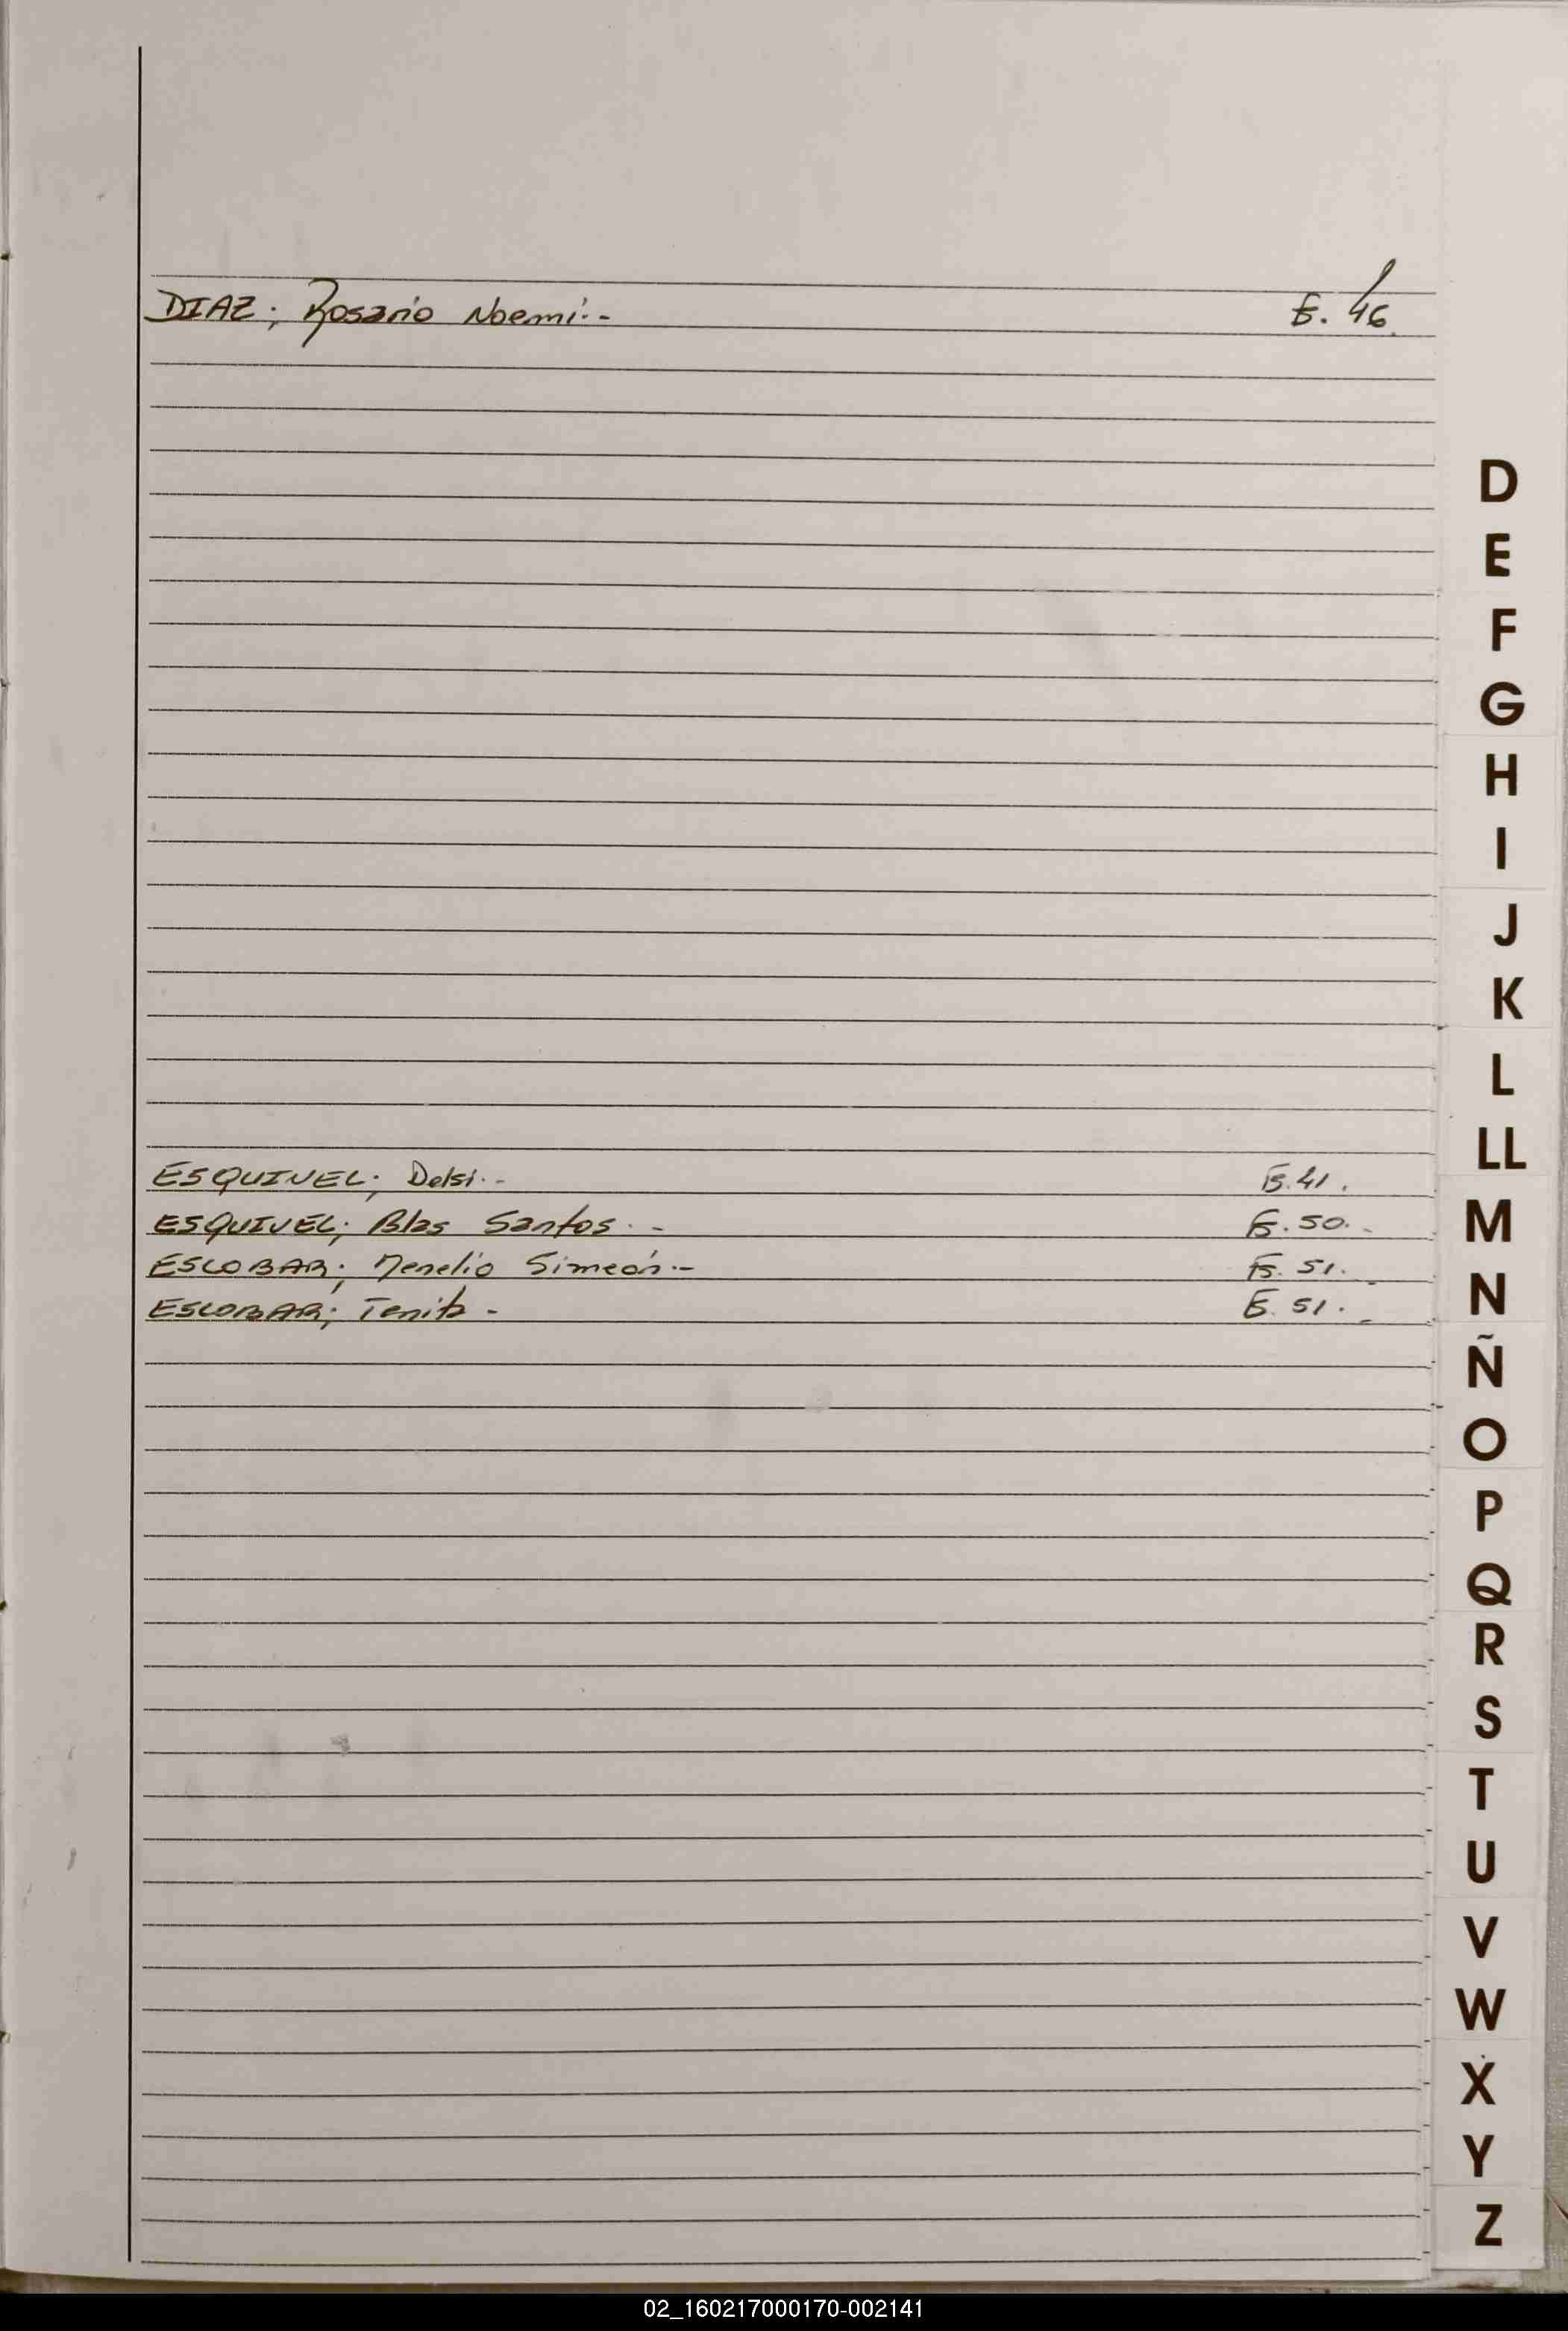 DIAZ; Rosario Noemí.- F. 46
D
E
F
G
H
I
J
K
L
LL
ESQUIVEL; Delsi.- F. 41.
M
ESQUIVEL; Blas Santos.- F. 50.-
ESCOBAR; Simeón.- F. 51.-
N
ESCOBAR; - F. 51.-
Ñ
O
P
Q
R
S
T
U
V
W
X
Y
Z
02_160217000170-002141